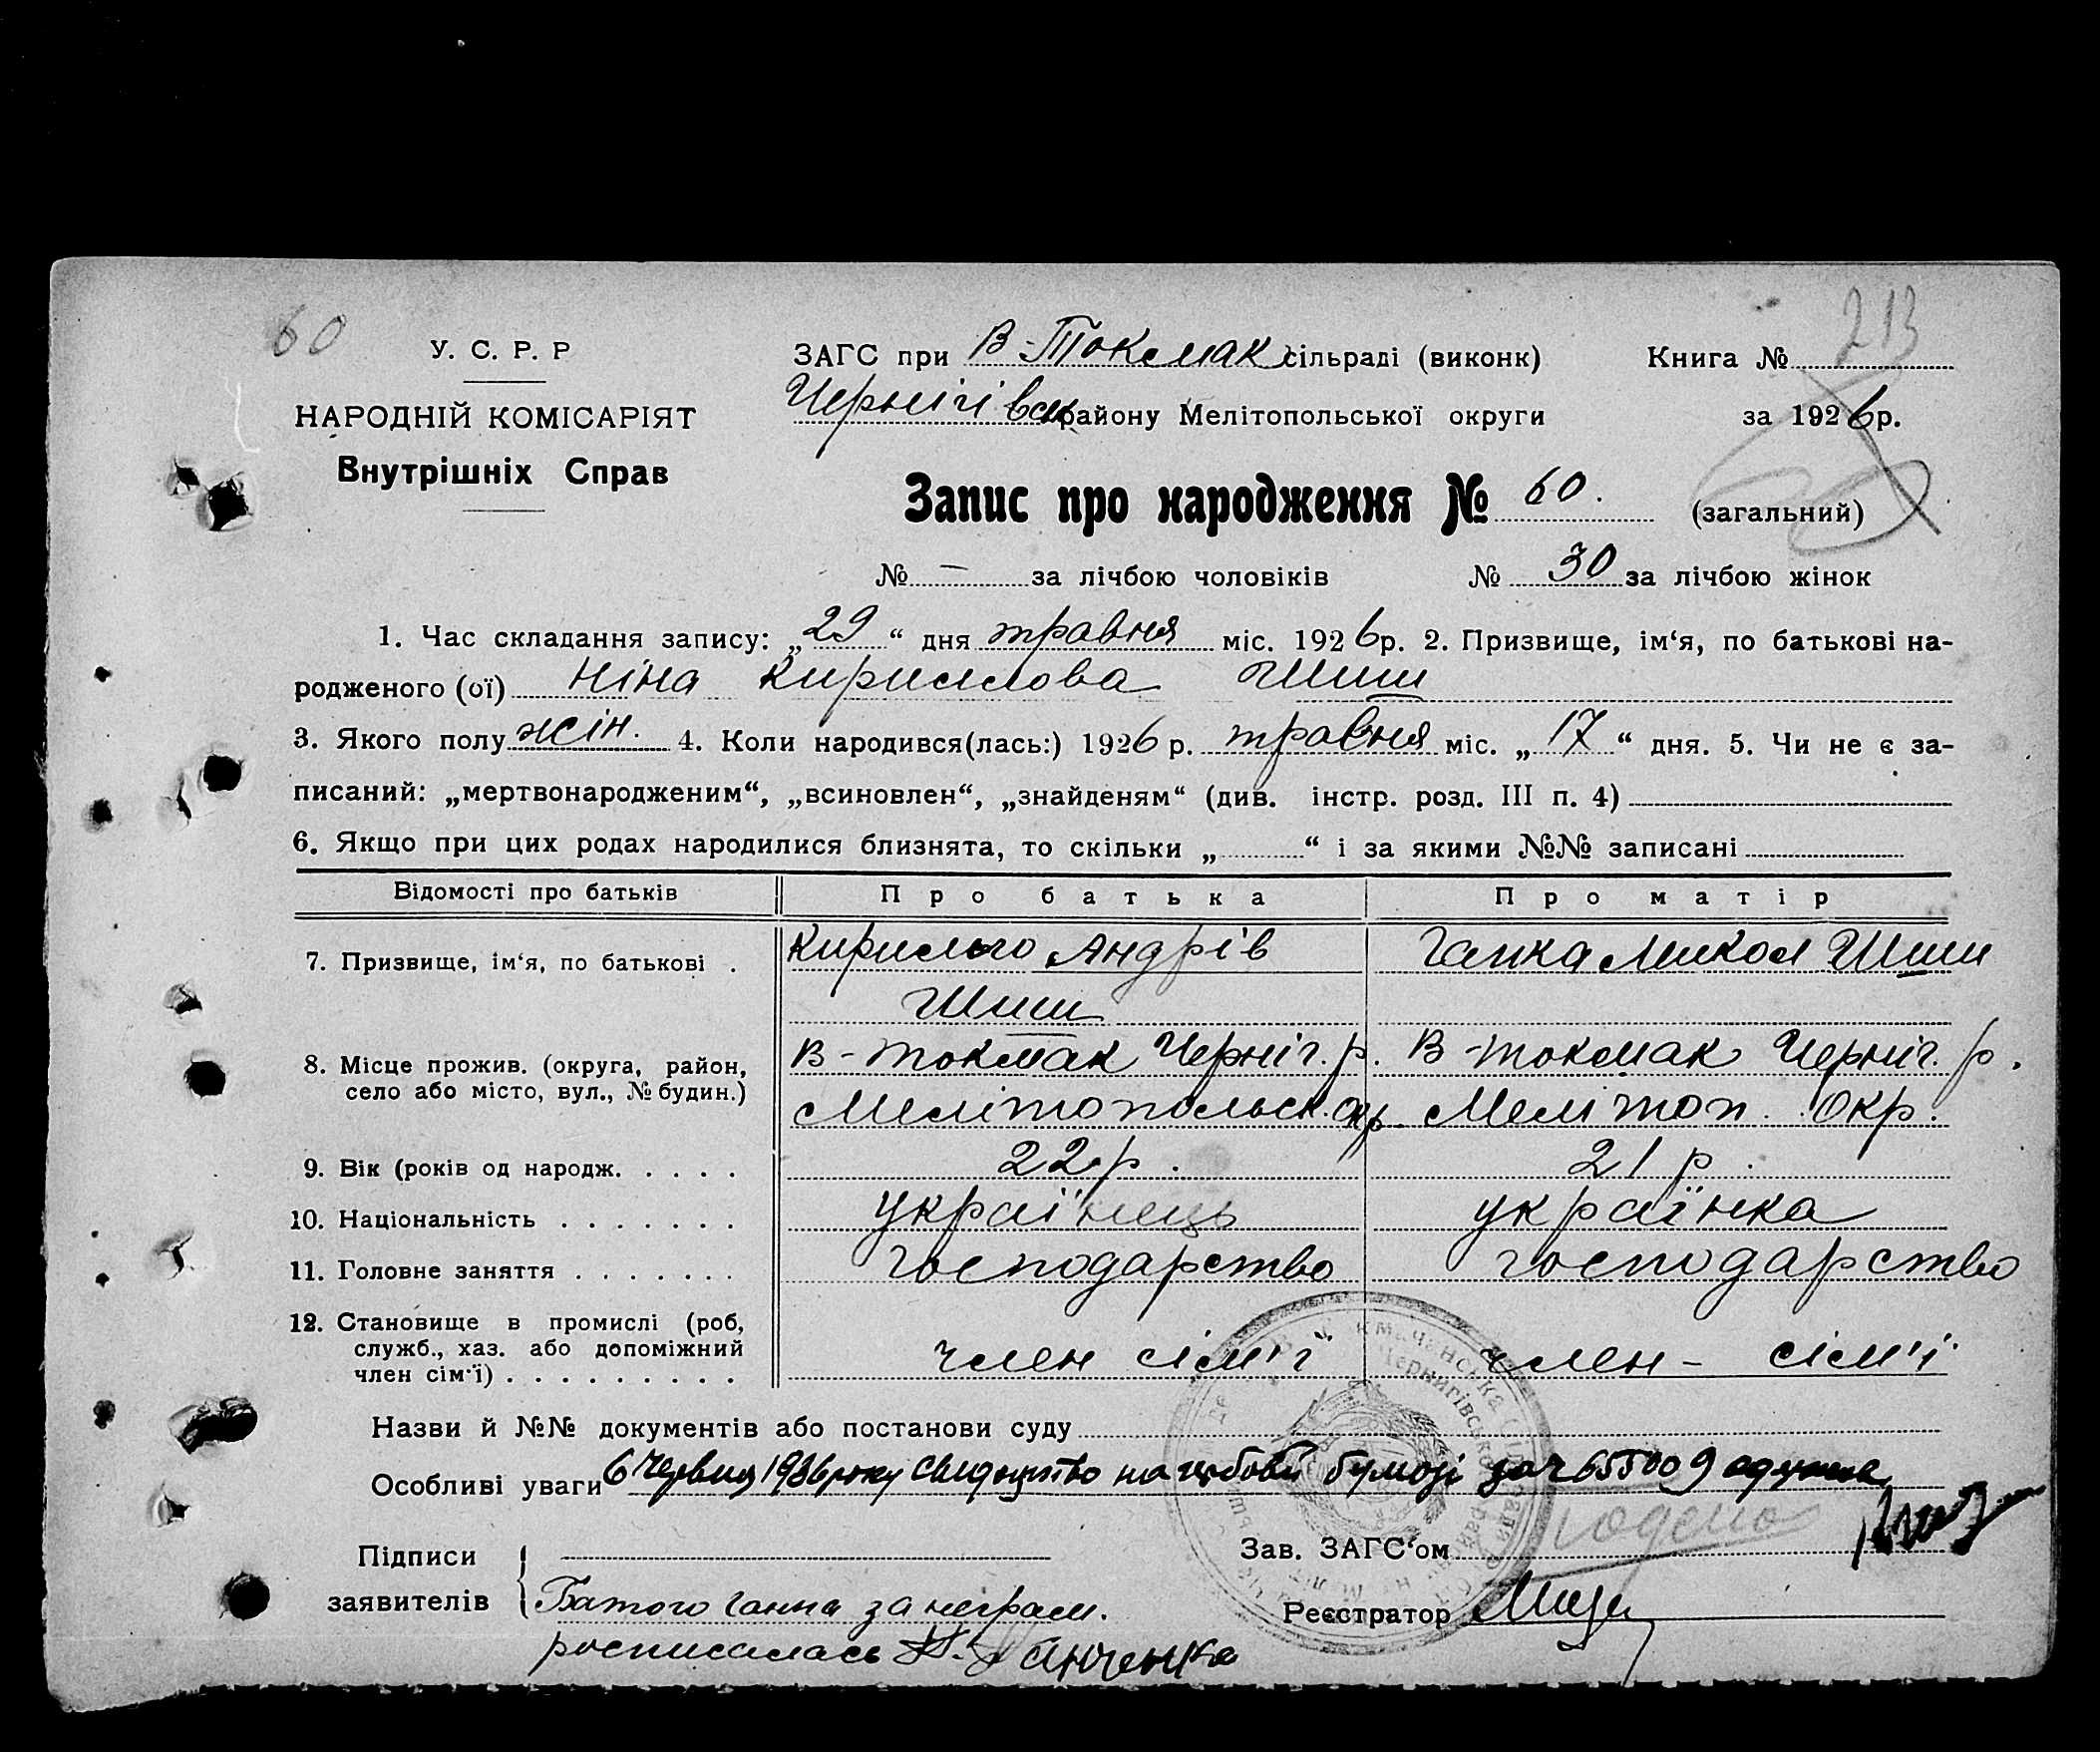 60
213
У. С. Р. Р
ЗАГС при В-Токмак сільраді (виконк)
Книга №
НАРОДНІЙ КОМІСАРІЯТ
Чернігівськ району Мелітопольської округи
за 1926 р.
Внутрішніх Справ
Запис про народження № 60. (загальний)
№ – за лічбою чоловіків № 30 за лічбою жінок
1. Час складання запису: „29“ дня травня міс. 1926 р. 2. Призвище, ім‘я, по батькові на-
родженого (ої) Ніна Кирилова Шиш
3. Якого полу жін. 4. Коли народився(лась:) 1926 р. травня міс. „17“ дня. 5. Чи не є за-
писаний: „мертвонародженим“, „всиновлен“, „знайденям“ (див. інстр. розд. III п. 4)
6. Якщо при цих родах народилися близнята, то скільки „ “ і за якими №№ записані
Відомості про батьків Про батька Про матір
7. Призвище, ім‘я, по батькові . Кирило Андрів Гапка Микол Шиш
Шиш
8. Місце прожив. (округа, район, В-Токмак Черніг. р. В-Токмак Черніг. р.
село або місто, вул., № будин.) Мелітопольск. окр. Мелітоп. Окр.
9. Вік (років од народж. . . . . 22 р. 21 р.
10. Національність . . . . . . . українець українка
11. Головне заняття . . . . . . . господарство господарство
12. Становище в промислі (роб,
служб., хаз. або допоміжний член сім'ї член – сім'ї
член сім‘ї) . . . . . . . . .
Назви й №№ документів або постанови суду
Особливі уваги 6 Червня 1936 року свидоцтво на гербовій бумозі за
Підписи Зав. ЗАГС‘ом
заявителів Ганна за неграм. Реєстратор
росписалась